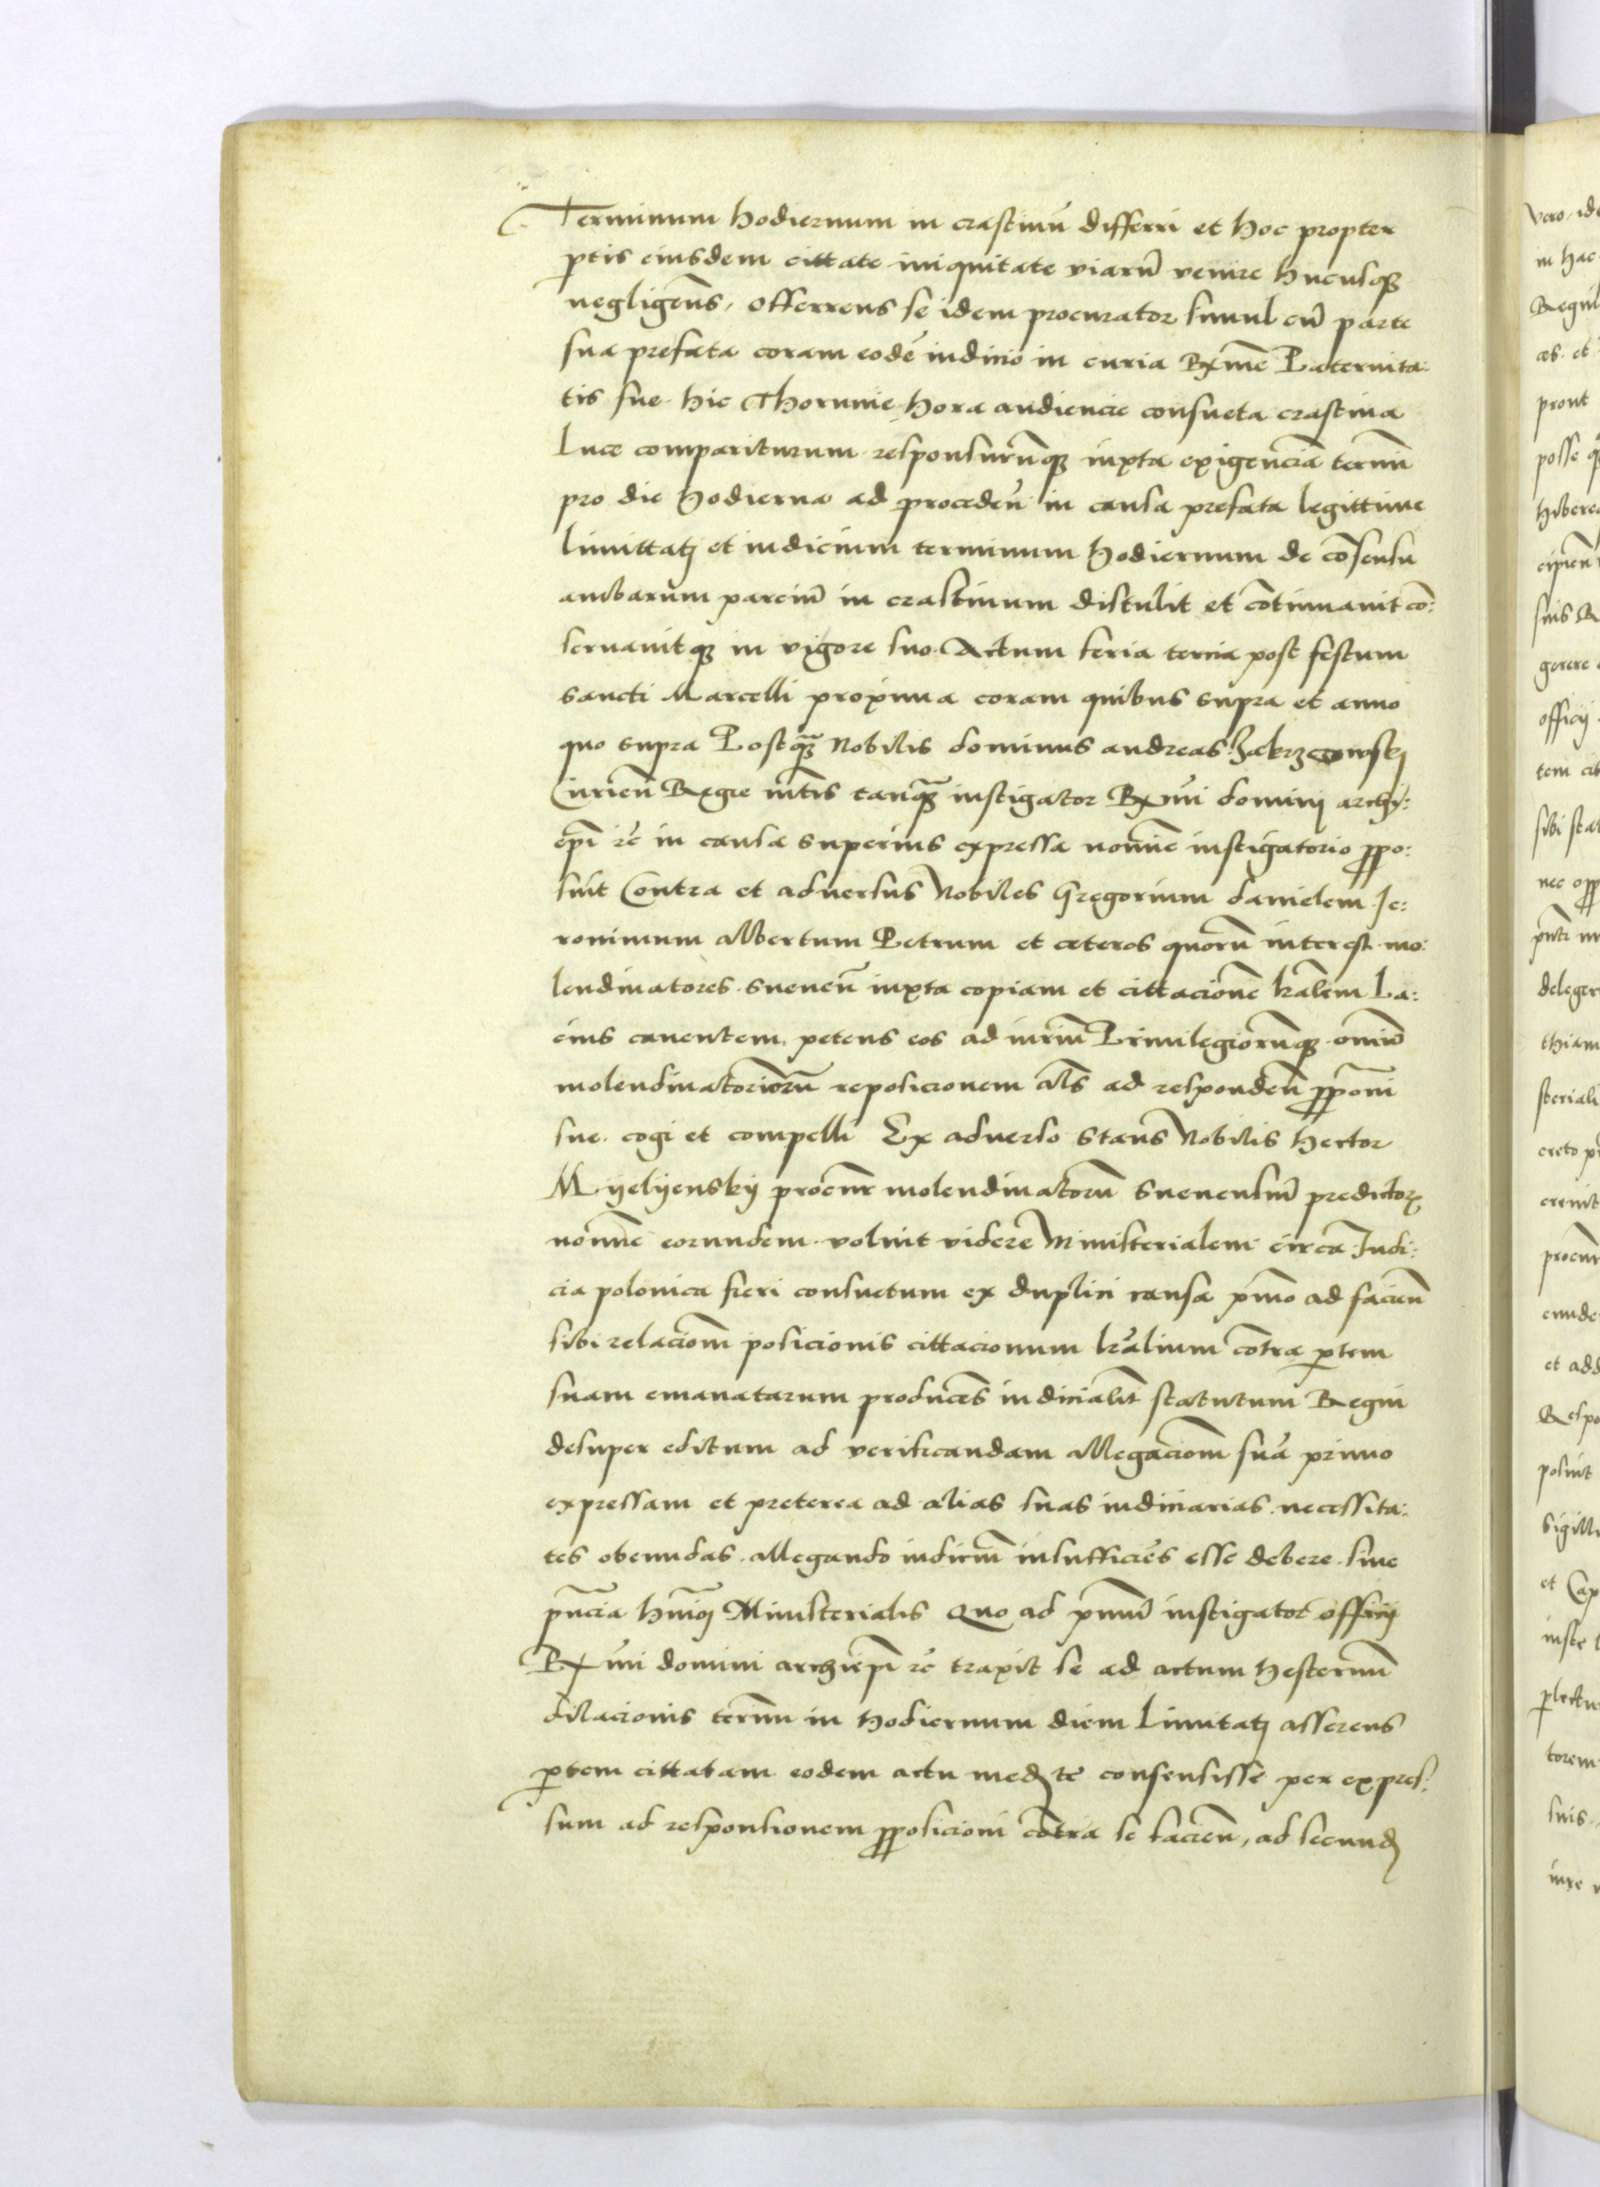 Terminum hodiernum in crastinū differri et hoc propter
ptis eiusdem cittate iniquitate viarū venire hucusqȝ
negligens, offerrens se idem procurator simul cū parte
sua prefata coram eodē iudicio in curia Rxme Paternita:
tis sue hic Thorunie hora audiencie consueta crastina
luce compariturum responsurūqȝ iuxta exigenciā termi
pro die hodierna ad proceden in causa prefata legittime
limittatj et iudicium terminum hodiernum de cosensu
ambarum parciū in crastinum distulit et cotinuauit co:
seruauitqȝ in vigore suo Actum feria tercia post festum
sancti Marcelli proxima coram quibus supra et anno
quo supra Postqȝ Nobilis dominus andreas Zakrzewskj
Curien Regie mtis tanqȝ instigator Rxmi dominj archy:
epi rc in causa superius expressa nomine instigatorio ppo:
suit Contra et aduersus Nobiles Gregorium danielem Je:
ronimum albertum Petrum et ceteros quorū interest mo:
lendinatores sueuen iuxta copiam et cittacione lralem La:
cius canentem petens eos ad iurim Priuilegiorūqȝ omiū
molendinatoriorū reposicionem als ad responden pponi
sue cogi et compelli Ex aduerso stans Nobilis hector
Myelyensky procur molendinatorū sueuensiū predictorꝝ
nomine eorundem voluit videre Ministerialem circa Judi:
cia polonica fieri consuetum ex duplici causa pmo ad facien
sibi relaciom posicionis cittacionum lralium cotra ptem
suam emanatarum produces iudicialit statutum Regni
desuper editum ad verificandam allegaciom suā primo
expressam et preterea ad alias suas iudiciarias necessita:
tes obeundas allegando iudiciū insufficies esse debere sine
pncia hmoi Ministerialis Quo ad pmū instigator officij
Rxmi domini archiepi rc traxit se ad actum hesternū
dilacionis termi in hodiernum diem limitatj asserens
ptem cittatam eodem actu medte consensisse per expres:
sum ad responsionem pposicioni cotra se facien, ad secund